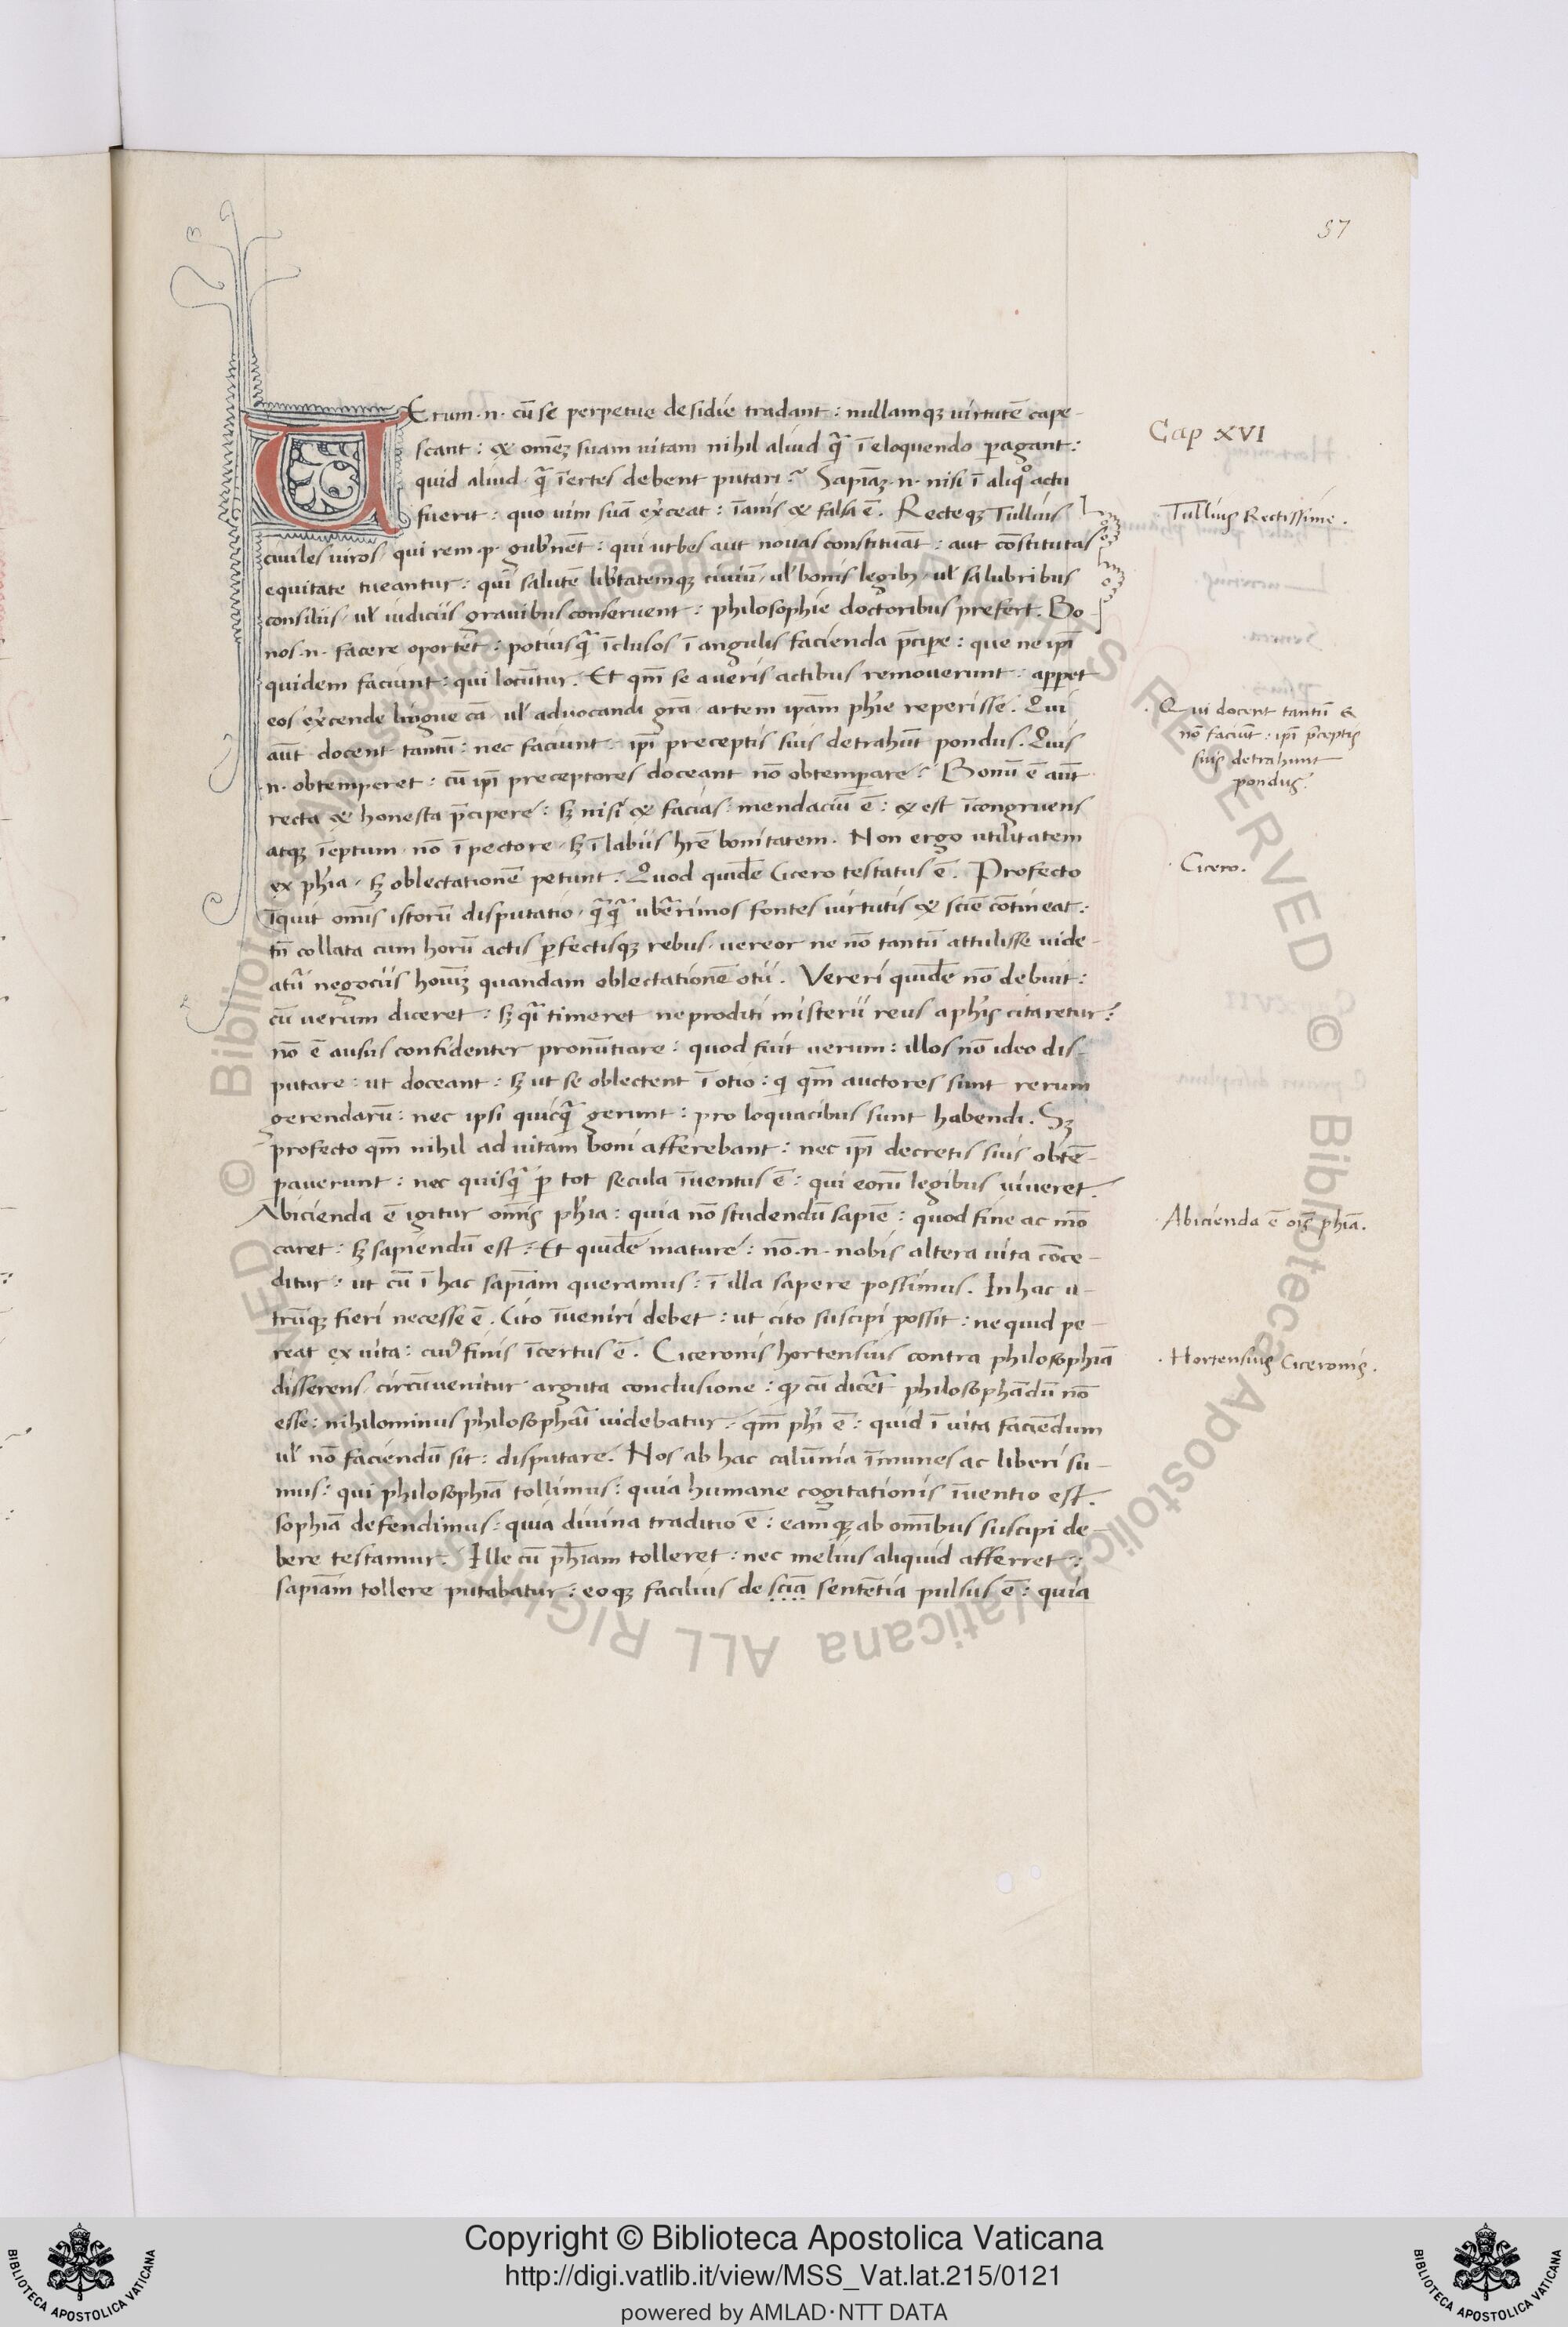 57
UErum .n. cū se perpetue desidie tradant : nullamqꝫ virtutē cape-
scant : & omēꝫ suam uitam nihil aliud qͣ̄ ī eloquendo ꝑagant :
quid aliud qͣ̄ īertes debent putari? Sapiāꝫ .n. nisi ī aliqͦ actu
fuerit : quo uim suā exͬceat : īanis & falsa ē. Recteqꝫ Tullius
ciuiles uiros qui rem .p. gubͬnēt : qui urbes aut nouas constituāt : aut cōstitutas
equitate tueantur : qui salutē libͬtatemqꝫ ciuiū ul̄ bonis legibꝫ ul̄ salubribus
consiliis ul̄ iudiciis grauibus conseruent : philosophie doctoribus prefert. Bo-
nos .n. facere oportet : potiusqͣ̄ īclusos ī angulis facienda p̄cipe : que ne ip̄i
quidem faciunt : qui locūtur. Et qm̄ se a ueris actibus remouerunt : apꝑet
eos exͬcende lingue cā ul̄ aduocandi grā artem ipām phͥe reperisse. Qui
aūt docent tantū : nec faciunt : ip̄i preceptis suis detrahūt pondus. Quis
.n. obtemperet : cū ip̄i preceptores doceant nō obtemꝑare? Bonū ē aūt
recta & honesta p̄cipere : sꝫ nisi & facias mendaciū ē : & est īcongruens
atqꝫ īeptum nō ī pectore sꝫ ī labiis hr̄e bonitatem. Non ergo utilitatem
ex phͥa sꝫ oblectationē petunt. Quod quidē Cicero testatus ē. Profecto
īquit omīs istorū disputatio qͣ̄qͣ̄ ubͬrimos fontes uirtutis & sciē cōtineat :
tn̄ collata cum horū actis ꝑfectisqꝫ rebus uereor ne nō tantū attulisse uide-
atͬ negociis hoīuꝫ quandam oblectationē otii. Vereri quidē nō debuit :
cū uerum diceret : sꝫ qͣi timeret ne proditi misterii reus a phͥis citaretur :
nō ē ausus confidenter pronūtiare : quod fuit uerum : illos nō ideo dis-
putare : ut doceant : sꝫ ut se oblectent ī otio : q̇ qm̄ auctores sunt rerum
gerendarū : nec ipsi quicqͣ̄ gerunt : pro loquacibus sunt habendi. Sꝫ
profecto qm̄ nihil ad uitam boni afferebant : nec ip̄i decretis suis obtē-
ꝑauerunt : nec quisqͣ̄ ꝑ tot secula īuentus ē : qui eorū legibus uiueret.
Abicienda ē igitur omīs phͥa : quia nō studendū sapīe : quod fine ac mō
caret : sꝫ sapiendū est. Et quidē mature : nō .n. nobis altera uita cōce-
ditur : ut cū ī hac sapiām queramus : ī illa sapere possimus. In hac u-
trūqꝫ fieri necesse ē. Cito īueniri debet : ut cito suscipi possit : ne quid pe-
reat ex uita : cuiꝰ finis īcertus ē. Ciceronis hortensius contra philosophiā
disserens circūuenitur arguta conclusione : ꝙ cū dicͬet philosophādū nō
esse : nihilominus philosophāi uidebatur. qm̄ phͥi ē : quid ī uita faciēdum
ul̄ nō faciendū sit : disputare. Nos ab hac calūnia īmunes ac liberi su-
mus : qui philosophiā tollimus : quia humane cogitationis īuentio est.
sophiā defendimus : quia diuina traditio ē : eamqꝫ ab omībus suscipi de-
bere testamur. Ille cū phīam tolleret : nec melius aliquid afferret :
sapiām tollere putabatur : eoqꝫ facilius de sciā sentētia pulsus ē : quia
Cap XVI
Tullius Rectissime.
Qui docent tantū &
nō faciūt : ip̄i p̄ceptis
suis detrahunt
pondus.
Cicero.
Abicienda ē oīs phīa.
Hortensius Ciceronis.
© Biblioteca Apostolica Vaticana ALL RIGHTS RESERVED © Biblioteca Apostolica Vaticana ALL RIGHTS RESERVED
Copyright © Biblioteca Apostolica Vaticana
http://digi.vatlib.it/view/MSS_Vat.lat.215/0121
powered by AMLAD·NTT DATA
BIBLIOTECA APOSTOLICA VATICANA
BIBLIOTECA APOSTOLICA VATICANA